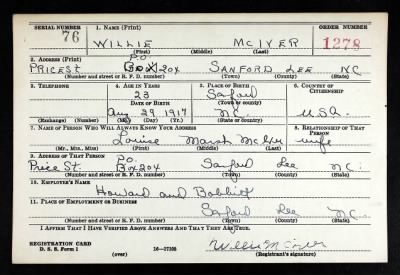 SERIAL NUMBER 1. NAME (Print) ORDER NUMBER
76 WILLIE McIVER 1278
(First) (Middle) (Last)
2. ADDRESS (Print)
P.O.
PRICE ST BOX 204 SANFORD LEE NC
(Number and street or R. F. D. number) (Town) (County) (State)
3. TELEPHONE 4. AGE IN YEARS 5. PLACE OF BIRTH 6. COUNTRY OF CITIZENSHIP
23 Sanford
DATE OF BIRTH (Town or county)
Aug 29 1917 N.C. U.S.A.
(Exchange) (Number) (Mo.) (Day) (Yr.) (State or country)
7. NAME OF PERSON WHO WILL ALWAYS KNOW YOUR ADDRESS 8. RELATIONSHIP OF THAT PERSON
Louise Marsh McIver wife
(Mr., Mrs., Miss) (First) (Middle) (Last)
9. ADDRESS OF THAT PERSON
P.O.
Price St Box 204 Sanford Lee N.C.
(Number and street or R. F. D. number) (Town) (County) (State)
10. EMPLOYER'S NAME
Howard and Bobbitt
11. PLACE OF EMPLOYMENT OR BUSINESS
Sanford Lee N.C.
(Number and street or R. F. D. number) (Town) (County) (State)
I AFFIRM THAT I HAVE VERIFIED ABOVE ANSWERS AND THAT THEY ARE TRUE.
REGISTRATION CARD
D. S. S. Form 1 16—17105 Willie McIver
(over) (Registrant's signature)